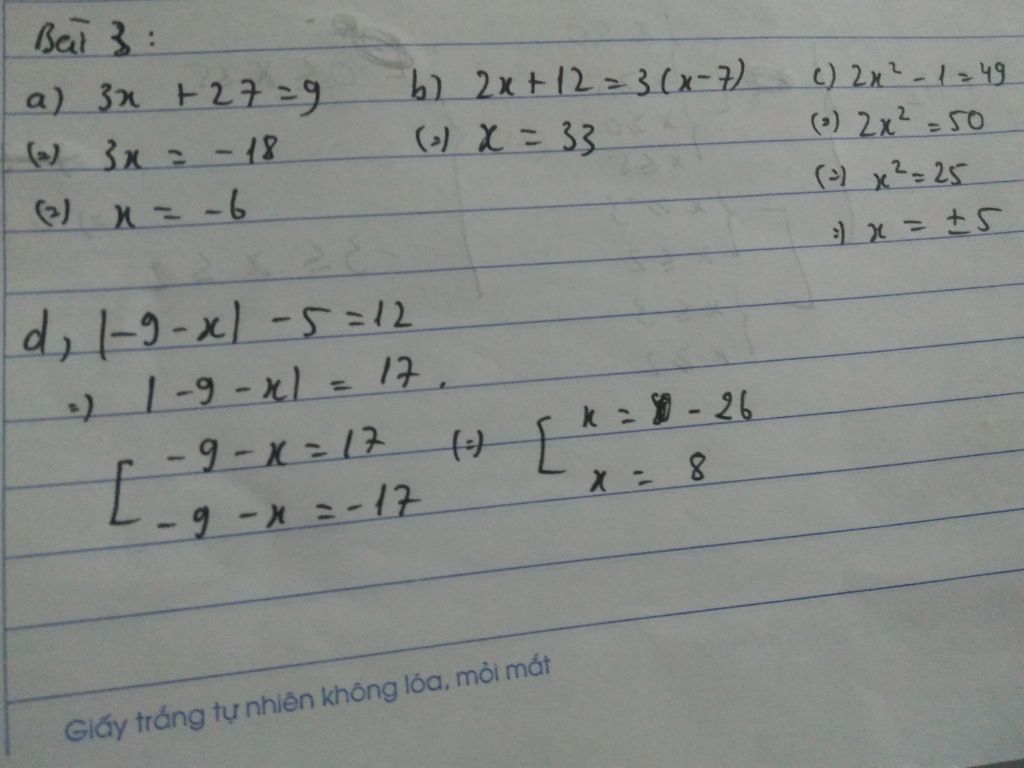 Bài 3 :
a) 3x + 27 = 9
(=) 3x = -18
(=) x = -6
b) 2x + 12 = 3(x-7)
(=) x = 33
c) 2x² - 1 = 49
(=) 2x² = 50
(=) x² = 25
=) x = ±5
d, |-9 - x| - 5 = 12
=) |-9 - x| = 17.
[ -9 - x = 17 (=) [ x = -26
-9 - x = -17 x = 8
Giấy trắng tự nhiên không lóa, mỏi mắt